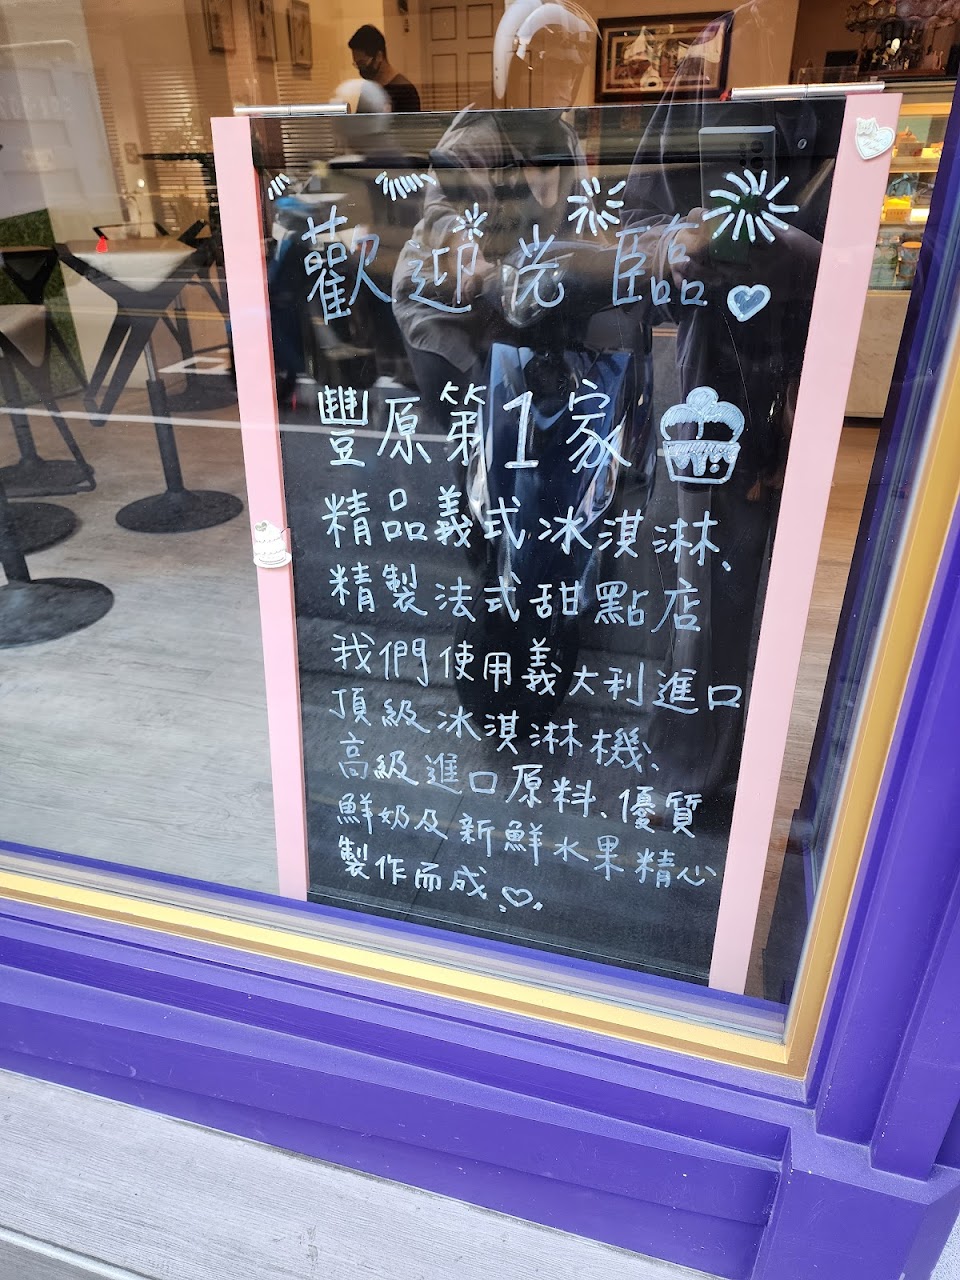 歡迎光臨
豐原第1家
精品義式冰淇淋、
精製法式甜點店
我們使用義大利進口
頂級冰淇淋機、
高級進口原料、優質
鮮奶及新鮮水果精心
製作而成